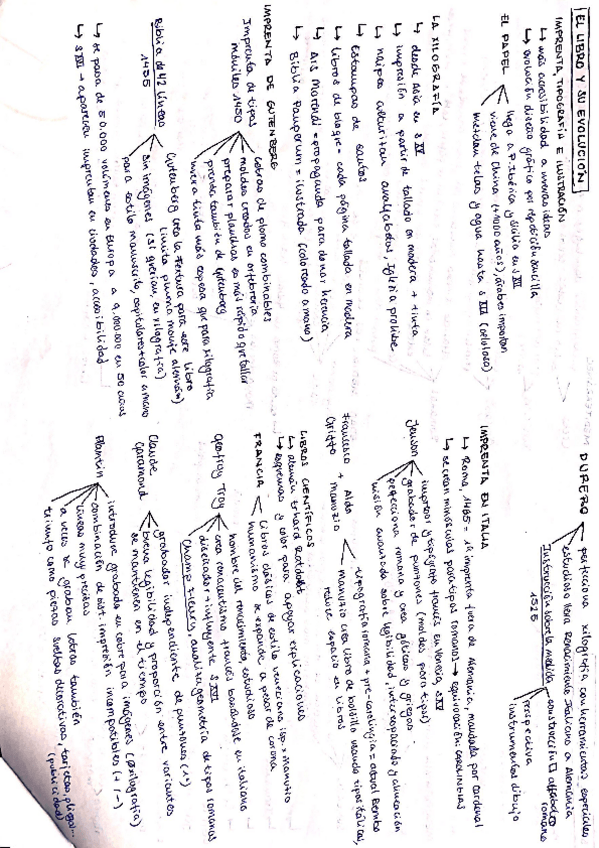 EL LIBRO Y SU EVOLUCIÓN
IMPRENTA, TIPOGRAFÍA E ILUSTRACIÓN
↳ más accesibilidad a nuevas ideas
↳ evolución diseño gráfico por repetición sencilla
EL PAPEL
llega a P. Ibérica y Sicilia en s XII
viene de China (+1000 años), árabes importan
mezclan telas y agua hasta s XIX (celulosa)
LA XILOGRAFÍA
↳ desde Asia en s XV
↳ impresión a partir de tallado en madera + tinta
↳ naipes culturizan analfabetos, Iglesia prohíbe
↳ estampas de santos
↳ libros de bloque = cada página tallada en madera
↳ Ars Moriendi = propaganda para donar herencia
↳ Biblia Pauperum = ilustrada (coloreado a mano)
IMPRENTA DE GUTENBERG
Imprenta de tipos móviles 1450
letras de plomo combinables
moldes creados en orfebrería
preparar planchas es más rápido que tallar
prensa también de Gutenberg
nueva tinta más espesa que para xilografía
Biblia de 42 líneas 1455
Gutenberg crea la Textura para este libro
(imita pluma monje alemán)
sin imágenes (si querían, en xilografía)
para estilo manuscrito, capitulares + color a mano
↳ se pasa de 50.000 volúmenes en Europa a 9.000.000 en 50 años
↳ s XVI → aparecen imprentas en ciudades, accesibilidad
DURERO
perfecciona xilografía con herramientas especiales
estudioso lleva Renacimiento Italiano a Alemania
Instrucción sobre la medida 1525
construcción alfabeto romano
perspectiva
instrumentos dibujo
IMPRENTA EN ITALIA
↳ Roma, 1465 = 1ª imprenta fuera de Alemania, mandada por cardenal
↳ se crean minúsculas para tipos romanos → equivocación:
Jenson
impresor y tipógrafo francés en Venecia, s XV
grabador de punzones (moldes para tipos)
perfecciona romana y crea góticas y griegas
visión avanzada sobre legibilidad, interespaciado y alineación
Francesco Griffo + Aldo Manuzio
tipografía romana + pre-carolingia = actual Bembo
Manuzio crea libro de bolsillo usando tipos itálicos,
reduce espacio en libros
LIBROS CIENTÍFICOS
↳ alemán Erhard Ratdolt
↳ esquemas y color para apoyar explicaciones
FRANCIA
libros clásicos de estilo veneciano, esp. x Manuzio
humanismo se expande a pesar de corona
Geofroy Troy
hombre del renacimiento, estudioso
crea renacentismo francés basándose en italiano
diseñador + influyente s XVI
Champ Fleury, analiza geometría de tipos romanos
Claude Garamond
grabador independiente de punzones (1º)
buena legibilidad y proporción entre variantes
se mantienen en el tiempo
Plantin
introduce grabado en cobre para imágenes (xilografía)
combinación de sist. impresión incompatibles (+ / -)
líneas muy precisas
a veces se graban letras también
triunfo como piezas sueltas decorativas, tarjetas, pliegos... (publicidad)